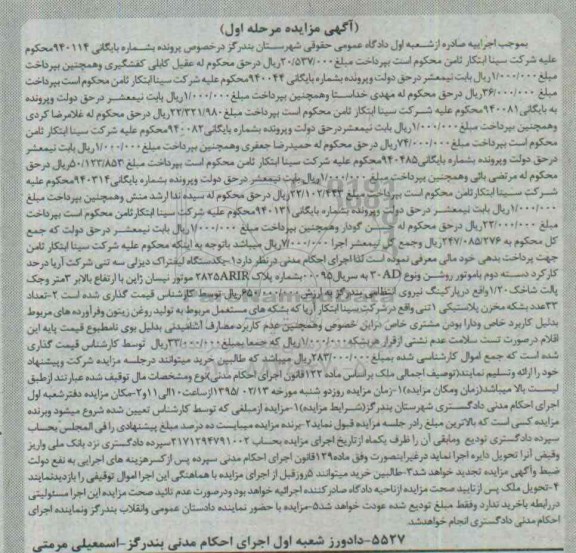 (آگهی مزایده مرحله اول)
بموجب اجراییه صادره ازشعبه اول دادگاه عمومی حقوقی شهرستان بندرگز درخصوص پرونده بشماره بایگانی ۹۴۰۱۱۴محکوم
علیه شرکت سینا ابتکار ثامن محکوم است بپرداخت مبلغ۲۰/۵۳۷/۰۰۰ریال درحق محکوم له عقیل کابلی کفشگیری وهمچنین بپرداخت
مبلغ ۱/۰۰۰/۰۰۰ریال بابت نیمعشر درحق دولت وپرونده بشماره بایگانی ۹۴۰۰۴۴محکوم علیه شرکت سیناابتکار ثامن محکوم است بپرداخت
مبلغ ۳۶/۰۰۰/۰۰۰ریال درحق محکوم له مهدی خداستا وهمچنین بپرداخت مبلغ۱/۰۰۰/۰۰۰ریال بابت نیمعشر درحق دولت وپرونده
به بایگانی۹۴۰۰۸۱ محکوم علیه شرکت سینا ابتکار ثامن محکوم است بپرداخت مبلغ۲۲/۳۲۱/۹۸۰ریال درحق محکوم له غلامرضا کردی
وهمچنین بپرداخت مبلغ ۱/۰۰۰/۰۰۰ریال بابت نیمعشردرحق دولت وپرونده بشماره بایگانی۹۴۰۰۸۲محکوم علیه شرکت سینا ابتکار ثامن
محکوم است بپرداخت مبلغ۷۴/۰۰۰/۰۰۰ریال درحق محکوم له حمیدرضا جعفری وهمچنین بپرداخت مبلغ۱/۰۰۰/۰۰۰ریال بابت نیمعشر
درحق دولت وپرونده بشماره بایگانی۹۴۰۴۸۵محکوم علیه شرکت سینا ابتکار ثامن محکوم است بپرداخت مبلغ ۵۰/۱۲۳/۸۵۳ریال درحق
محکوم له مرتضی بائی وهمچنین بپرداخت مبلغ ۱/۰۰۰/۰۰۰ریال بابت نیمعشر درحق دولت وپرونده بشماره بایگانی۹۴۰۳۱۴محکوم علیه
شرکت سینا ابتکار ثامن محکوم است بپرداخت مبلغ ۲۲/۱۰۲/۴۴۳ریال درحق محکوم له سیده ندا ارشد منش وهمچنین بپرداخت مبلغ
۱/۰۰۰/۰۰۰ریال بابت نیمعشر درحق دولت وپرونده بشماره بایگانی ۹۴۰۱۳۱محکوم علیه شرکت سینا ابتکار ثامن محکوم است بپرداخت
مبلغ ۲۲/۰۰۰/۰۰۰ریال درحق محکوم له گودار وهمچنین بپرداخت مبلغ ۱/۰۰۰/۰۰۰ریال بابت نیمعشر درحق دولت که جمع
کل محکوم به ۲۴۷/۰۸۵/۲۷۶ریال وجمع کل نیمعشر اجرا ۷/۰۰۰/۰۰۰ریال میباشد باتوجه به اینکه محکوم علیه شرکت سینا ابتکار ثامن
جهت پرداخت بدهی خود مالی معرفی ننموده است لذا اجرای احکام مدنی درنظر دارد۱-یکدستگاه لیفتراک دیزلی سه تنی شرکت آریا درحد
کارکرد دسته دوم باموتور روشن ونوع ۳۰AD به سریال۰۰۰۹۵ بشماره پلاک ۲۸۲۵ARIR موتور نیسان ژاپن با ارتفاع بالابر ۳متر وجک
پالت شاخک ۱/۲۰واقع درپارکینگ نیروی انتظامی بندرگز به ارزش ریال توسط کارشناس قیمت گذاری شده است ۲-تعداد
۳۳عدد بشکه مخزن پلاستیکی ۱تنی واقع درشرکت سینا ابتکار آریا که بشکه های مستعمل مربوط به تولید روغن زیتون وفرآورده های مربوط
بدلیل کاربرد خاص ودارا بودن مشتری خاص دراین خصوص وهمچنین عدم کاربردمصارف آشامیدنی بدلیل بوی نامطبوع قیمت پایه این
اقلام درصورت تست سلامت عدم نشتی ازقرار هربشکه۱/۰۰۰/۰۰۰ریال که جمعا بمبلغ۳۳/۰۰۰/۰۰۰ریال توسط کارشناس قیمت گذاری
شده است که جمع اموال کارشناسی شده بمبلغ۲۸۳/۰۰۰/۰۰۰ریال میباشد که طالبین خرید میتوانند درجلسه مزایده شرکت وپیشنهاد
خود را ارائه وتسلیم نمایند(توصیف اجمالی ملک براساس ماده ۱۲۲قانون اجرای احکام مدنی)نوع ومشخصات مال توقیف شده عبارتند ازطبق
لیست بالا میباشد(زمان ومکان مزایده)۱-زمان مزایده روزدو شنبه مورخه ۱۳۹۵/۰۲/۱۳ازساعت۱۰الی۱۱و۲-مکان مزایده دفترشعبه اول
اجرای احکام مدنی دادگستری شهرستان بندرگز(شرایط مزایده)۱-مزایده ازمبلغی که توسط کارشناس تعیین شده شروع میشود وبرنده
مزایده کسی است که بالاترین مبلغ رادر جلسه مزایده قبول نماید۲-برنده مزایده میبایست ده درصد مبلغ پیشنهادی را فی المجلس بحساب
سپرده دادگستری تودیع ومابقی آن را ظرف یکماه ازتاریخ اجرای مزایده بحساب ۲۱۷۱۲۹۴۷۹۱۰۰۲سپرده دادگستری نزد بانک ملی واریز
وقبض آنرا تحویل دایره اجرا نماید درغیراینصورت وفق ماده۱۲۹قانون اجرای احکام مدنی سپرده پس از کسرهزینه های اجرایی به نفع دولت
ضبط وآگهی مزایده تجدید خواهد شد۳-طالبین خرید میتوانند ۵روزقبل از اجرای مزایده با هماهنگی این اجرا اموال توقیفی را بازدیدنمایند
۴-تحویل ملک پس ازتایید صحت مزایده ازناحیه دادگاه صادرکننده اجرائیه خواهد بود ودرصورت عدم تائید صحت مزایده این اجرا مسئولیتی
دررابطه باخرید ندارد وفقط مبلغ تودیع شده عودت خواهد شد۵-مزایده با حضور نماینده دادستان عمومی وانقلاب بندرگز ونماینده اجرای
احکام مدنی دادگستری انجام خواهدشد.
۵۵۲۷-دادورز شعبه اول اجرای احکام مدنی بندرگز-اسمعیلی مرمتی